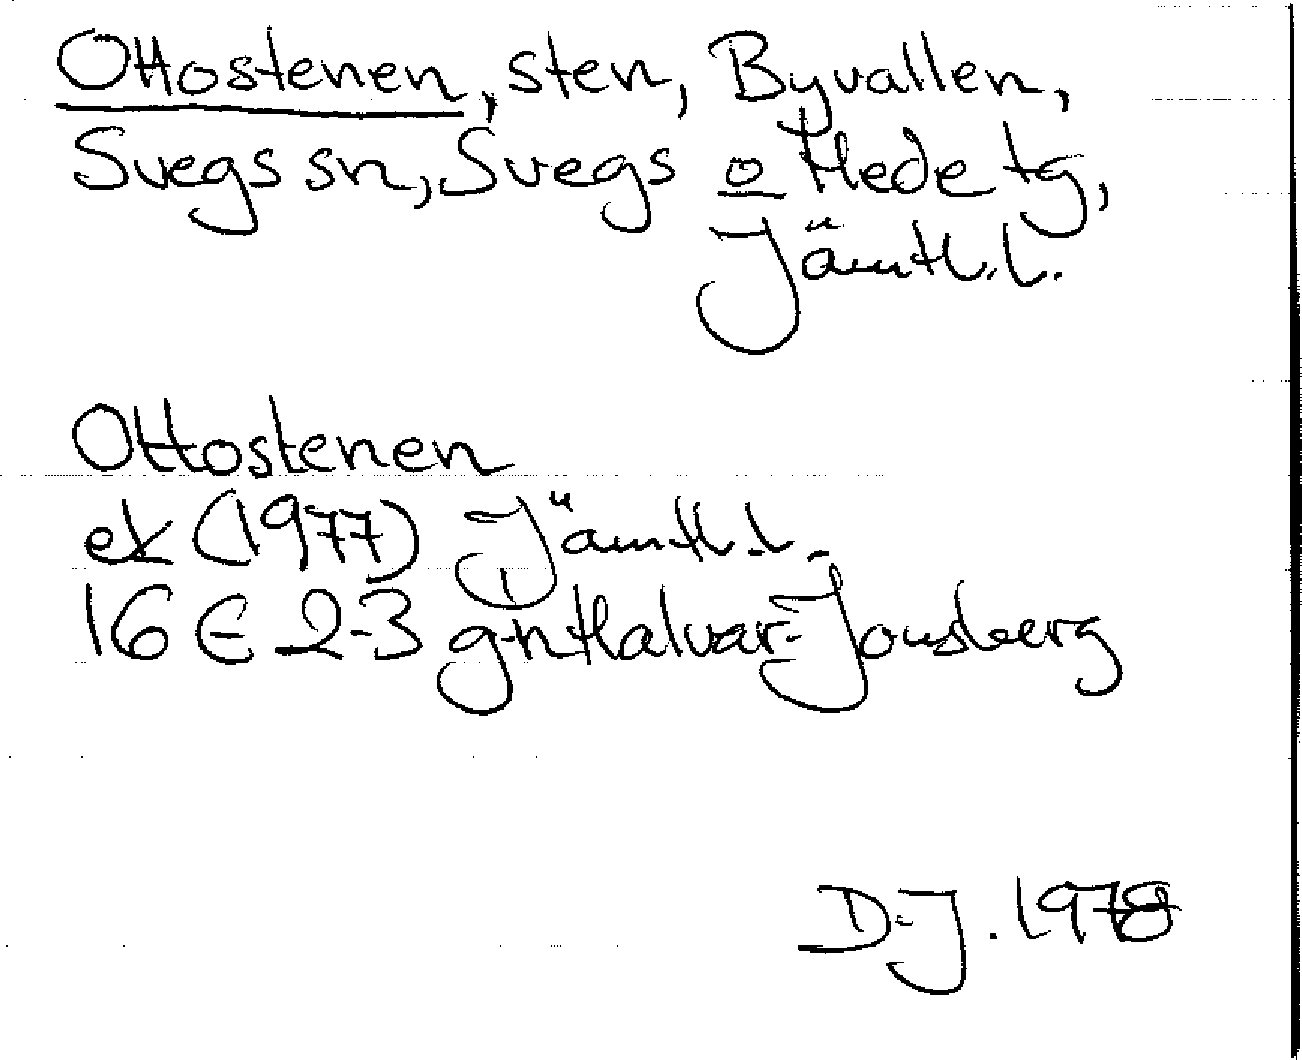 Ottostenen, sten, Byvallen,
Svegs sn, Svegs o Hede tg,
Jämtl. l.
Ottostenen
ek (1977) Jämtl. l.
16 E 2-3 g-h Halvar-Jonsberg
D-J. 1978